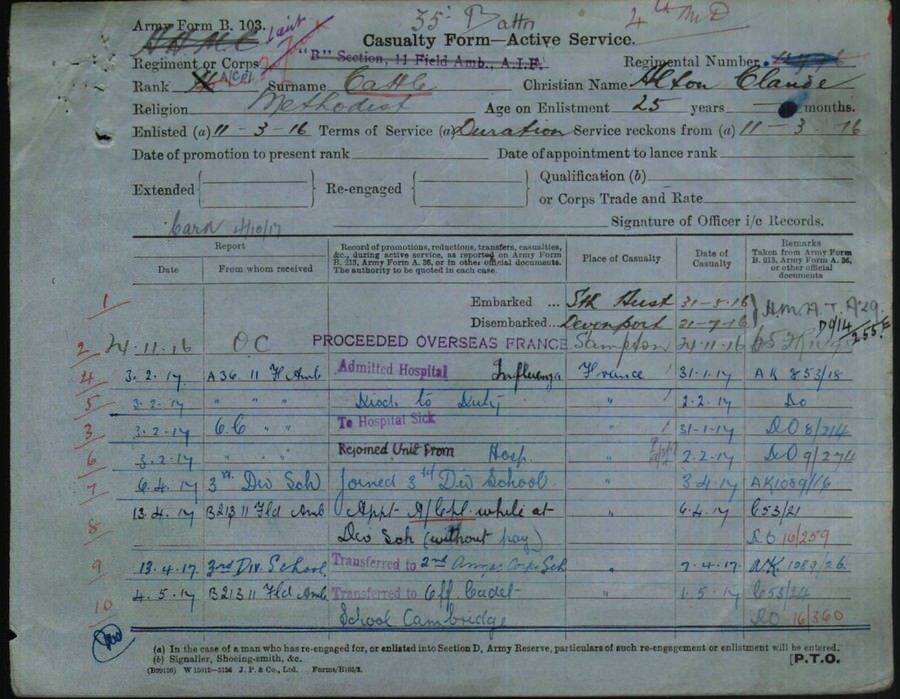 35 Battn 4th M D
Army Form B. 103. Lieut
Casualty Form—Active Service.
Regiment or Corps "B" Section, 11 Field Amb., A.I.F. Regimental Number
Rank A/Cpl Surname Cattle Christian Name Alton Claude
Religion Methodist Age on Enlistment 25 years — months.
Enlisted (a) 11-3-16 Terms of Service (a) Duration Service reckons from (a) 11-3-16
Date of promotion to present rank Date of appointment to lance rank
Extended Re-engaged Qualification (b)
or Corps Trade and Rate
Card
Signature of Officer i/c Records.
Report
Date From whom received
Record of promotions, reductions, transfers, casualties, &c., during active service, as reported on Army Form B. 213, Army Form A. 36, or in other official documents. The authority to be quoted in each case.
Place of Casualty
Date of Casualty
Remarks Taken from Army Form B. 213, Army Form A. 36, or other official documents
1 Embarked ... Sth Aust 31-5-16 H.M.A.T. A29.
Disembarked... Devonport 21-7-16
2 24.11.16 O.C PROCEEDED OVERSEAS FRANCE 24.11.16
4 3.2.17 A36. 11 Fd Amb Admitted Hospital Influenza France 31.1.17 AK 853/18
5 3.2.17 " " " Disch to Duty " 2.2.17 Do
3 3.2.17 C.C " " To Hospital Sick " 31-1-17 DO 8/214
6 3.2.17 " " " Rejoined Unit From Hosp. " 2.2.17 DO 9/274
7 6.4.17 3rd Div Sch Joined 3rd Div School " 3.4.17 AK1089/16
13.4.17 B213 11 Fld Amb Appt A/Cpl. while at " 6.4.17 C53/21
8 Div Sch (without pay) DO 16/259
9 13.4.17 3rd Div. School Transferred to 2nd Anzac Corps Sch " 7.4.17 AK 1089/26
10 4.5.17 B213 11 Fld Amb Transferred to Off Cadet " 1.5.17 C53/24
School Cambridge DO 16/360
(a) In the case of a man who has re-engaged for, or enlisted into Section D, Army Reserve, particulars of such re-engagement or enlistment will be entered.
(b) Signaller, Shoeing-smith, &c. [P.T.O.
J. P. & Co., Ltd.